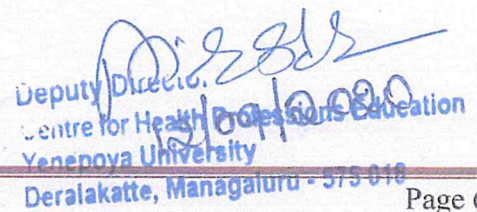 Deputy Director,
Centre for Health Professions Education
12/09/2020
Yenepoya University
Deralakatte, Managaluru - 575 018
Page